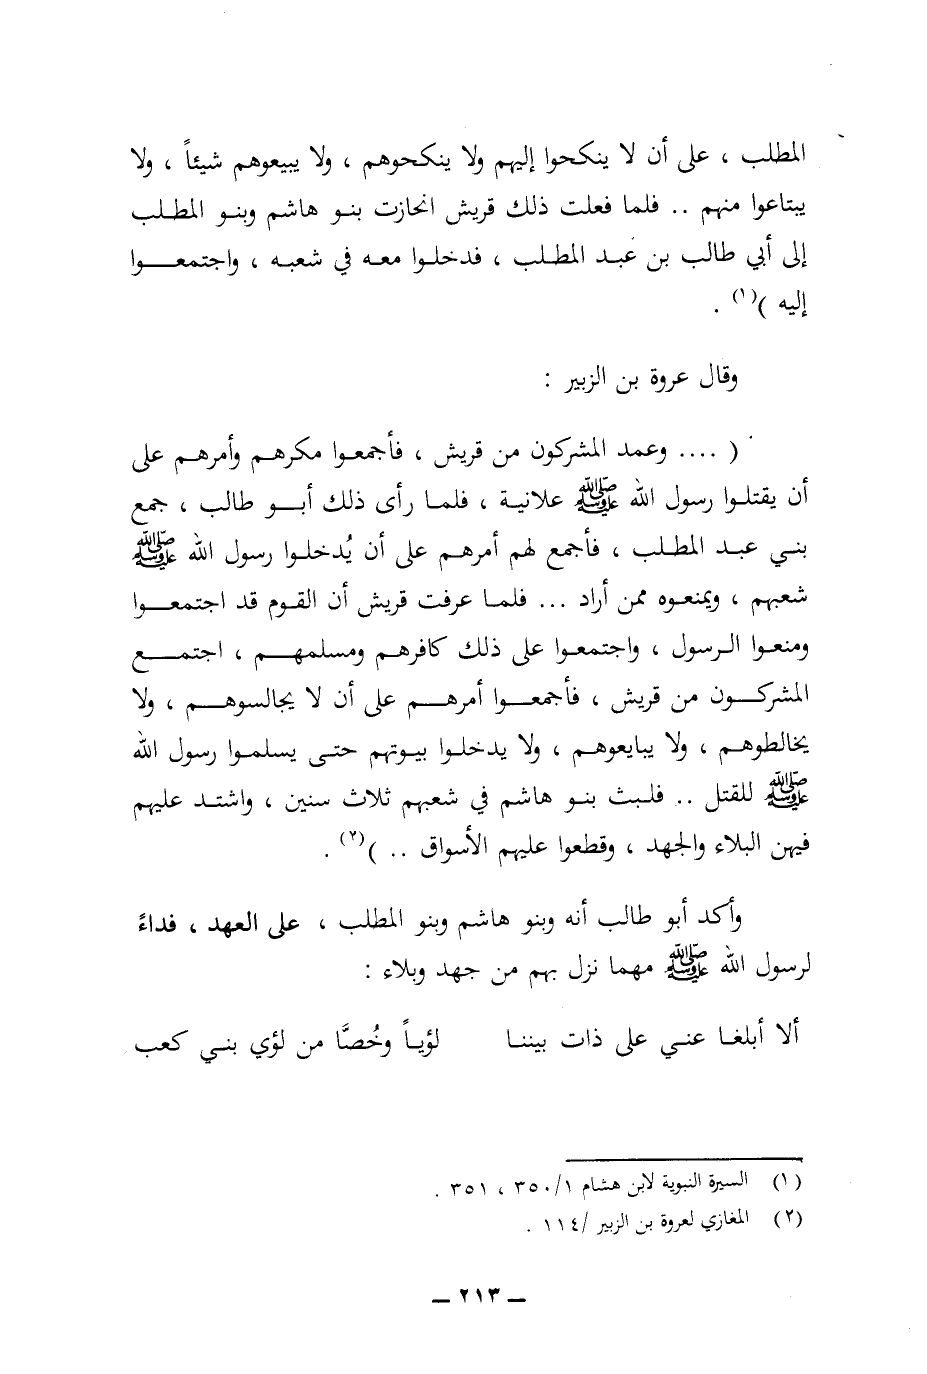 المطلب ، على أن لا ينكحوا إليهم ولا ينكحوهم ، ولا يبيعوهم شيئاً ، ولا
يبتاعوا منهم .. فلما فعلت ذلك قريش انحازت بنو هاشم وبنو المطلب
إلى أبي طالب بن عبد المطلب ، فدخلوا معه في شعبه ، واجتمعوا
إليه )(١) .
وقال عروة بن الزبير :
( .... وعمد المشركون من قريش ، فأجمعوا مكرهم وأمرهم على
أن يقتلوا رسول الله ﷺ علانية ، فلما رأى ذلك أبو طالب ، جمع
بني عبد المطلب ، فأجمع لهم أمرهم على أن يُدخلوا رسول الله ﷺ
شعبهم ، ويمنعوه ممن أراد ... فلما عرفت قريش أن القوم قد اجتمعوا
ومنعوا الرسول ، واجتمعوا على ذلك كافرهم ومسلمهم ، اجتمع
المشركون من قريش ، فأجمعوا أمرهم على أن لا يجالسوهم ، ولا
يخالطوهم ، ولا يبايعوهم ، ولا يدخلوا بيوتهم حتى يسلموا رسول الله
ﷺ للقتل .. فلبث بنو هاشم في شعبهم ثلاث سنين ، واشتد عليهم
فيهن البلاء والجهد ، وقطعوا عليهم الأسواق .. )(٢) .
وأكد أبو طالب أنه وبنو هاشم وبنو المطلب ، على العهد ، فداءً
لرسول الله ﷺ مهما نزل بهم من جهد وبلاء :
ألا أبلغا عني على ذات بيننا لؤياً وخُصَّا من لؤي بني كعب
(١) السيرة النبوية لابن هشام ٣٥٠/١ ، ٣٥١ .
(٢) المغازي لعروة بن الزبير /١١٤ .
ـ ٢١٣ ـ